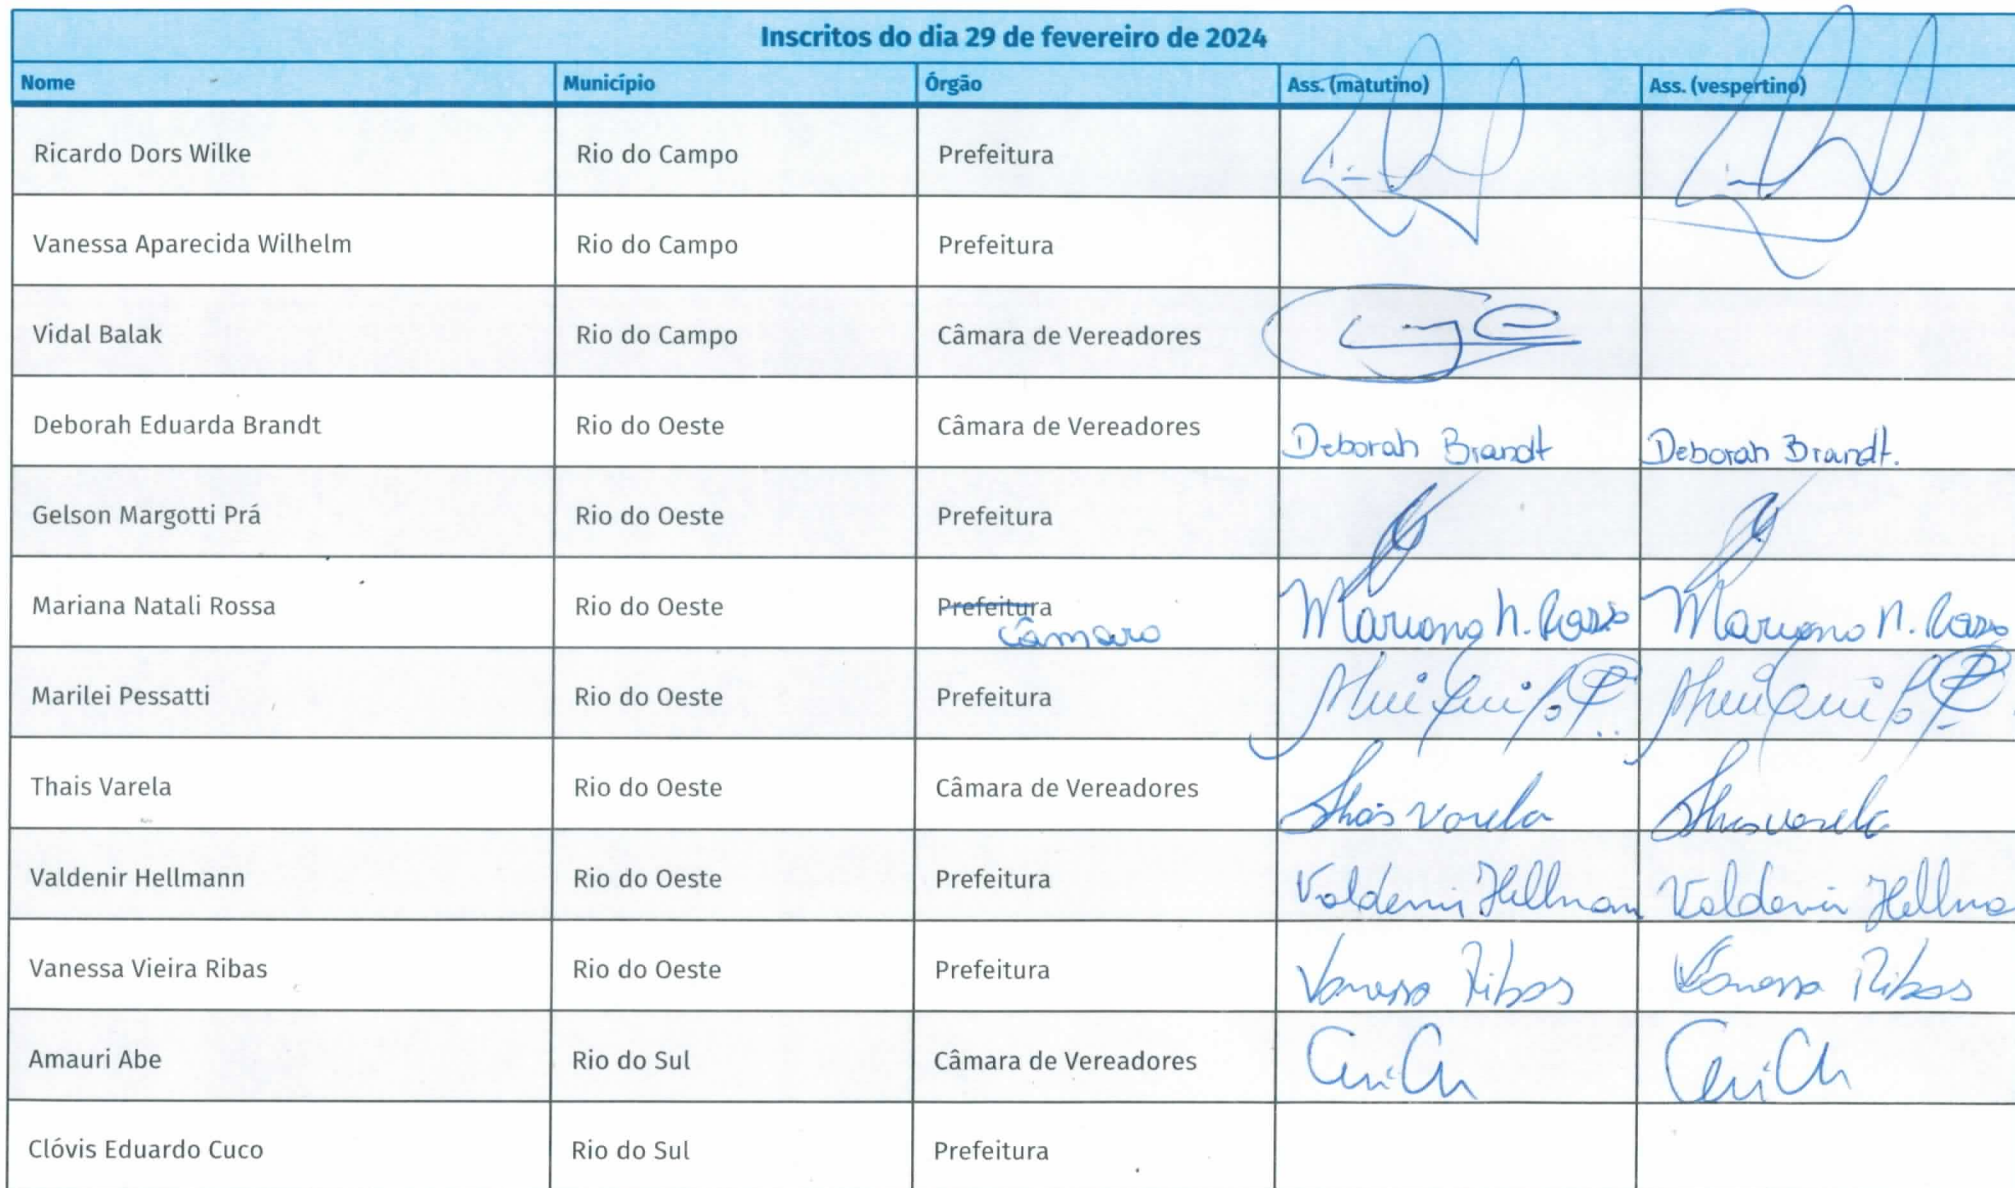 Inscritos do dia 29 de fevereiro de 2024
Nome Município Órgão Ass. (matutino) Ass. (vespertino)
Ricardo Dors Wilke Rio do Campo Prefeitura
Vanessa Aparecida Wilhelm Rio do Campo Prefeitura
Vidal Balak Rio do Campo Câmara de Vereadores
Deborah Eduarda Brandt Rio do Oeste Câmara de Vereadores Deborah Brandt Deborah Brandt.
Gelson Margotti Prá Rio do Oeste Prefeitura
Mariana Natali Rossa Rio do Oeste Prefeitura Mariana N. Rossa Mariana N. Rossa
Câmara
Marilei Pessatti Rio do Oeste Prefeitura
Thais Varela Rio do Oeste Câmara de Vereadores Thais Varela Thais Varela
Valdenir Hellmann Rio do Oeste Prefeitura Valdenir Hellman Valdenir Hellma
Vanessa Vieira Ribas Rio do Oeste Prefeitura Vanessa Ribas Vanessa Ribas
Amauri Abe Rio do Sul Câmara de Vereadores
Clóvis Eduardo Cuco Rio do Sul Prefeitura